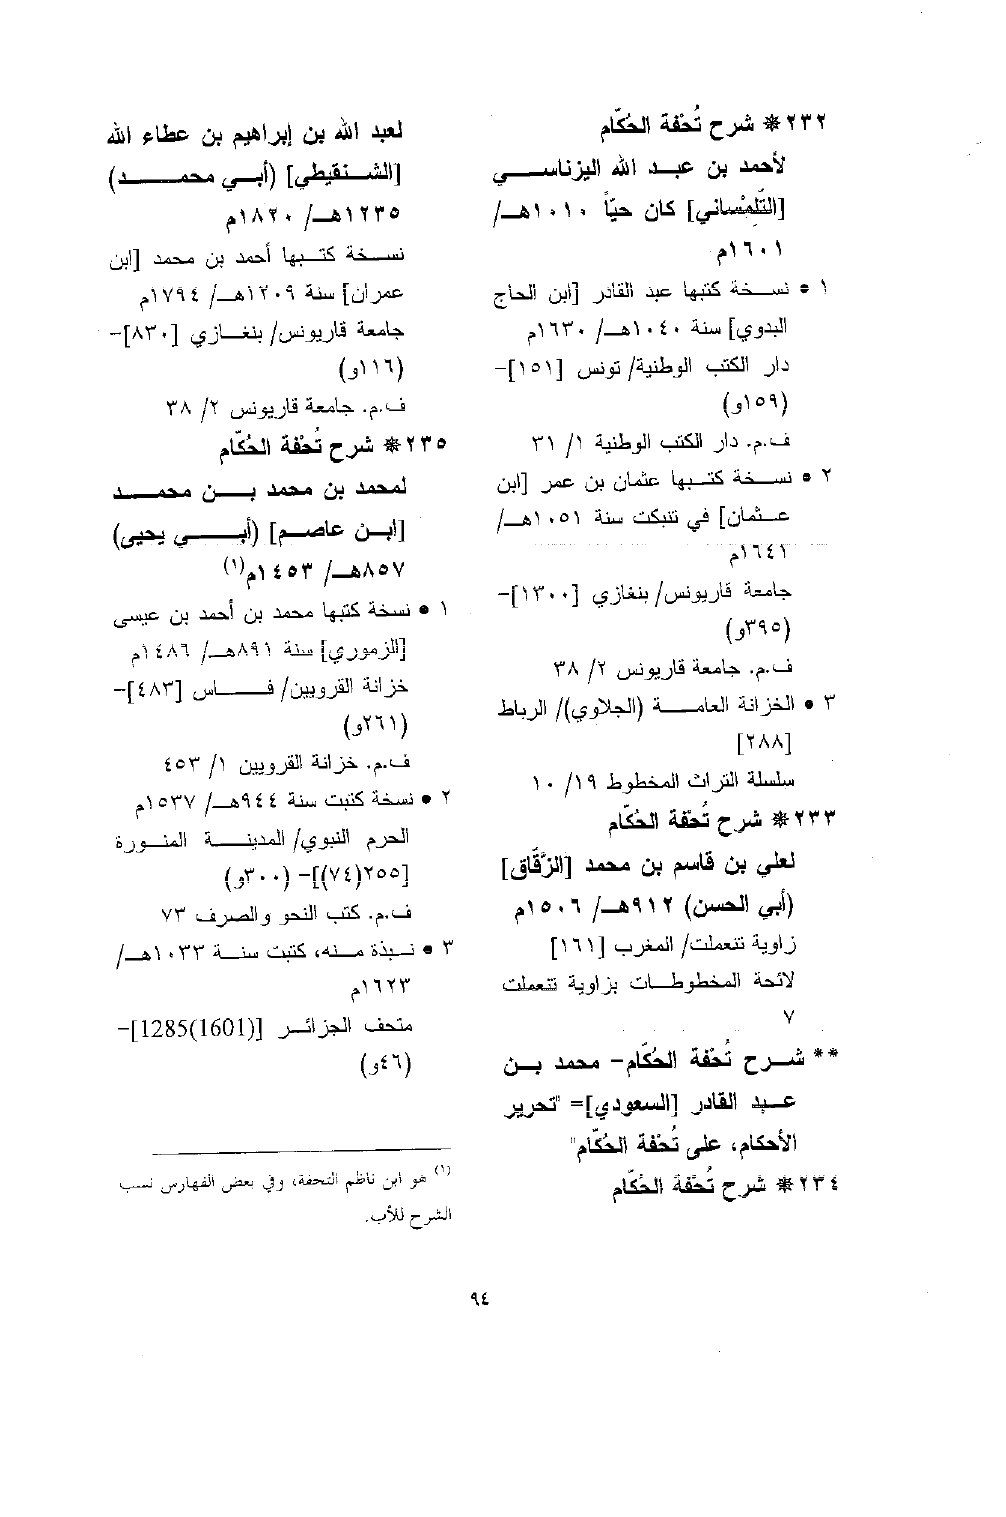 ٢٣٢* شرح تُحْفة الحُكّام
لأحمد بن عبد الله اليزناسي
[التِّلِمْساني] كان حيّاً ١٠١٠هـ/
١٦٠١م
١ • نسخة كتبها عبد القادر [ابن الحاج
البدوي] سنة ١٠٤٠هـ/ ١٦٣٠م
دار الكتب الوطنية/ تونس [١٥١]-
(١٥٩و)
ف.م. دار الكتب الوطنية ١/ ٣١
٢ • نسخة كتبها عثمان بن عمر [ابن
عثمان] في تنبكت سنة ١٠٥١هـ/
١٦٤١م
جامعة قاريونس/ بنغازي [١٣٠٠]-
(٣٩٥و)
ف.م. جامعة قاريونس ٢/ ٣٨
٣ • الخزانة العامة (الجلاوي)/ الرباط
[٢٨٨]
سلسلة التراث المخطوط ١٩/ ١٠
٢٣٣* شرح تُحْفة الحُكّام
لعلي بن قاسم بن محمد [الزَّقّاق]
(أبي الحسن) ٩١٢هـ/ ١٥٠٦م
زاوية تنعملت/ المغرب [١٦١]
لائحة المخطوطات بزاوية تنعملت
٧
** شرح تُحْفة الحُكّام- محمد بن
عبد القادر [السعودي]= "تحرير
الأحكام، على تُحْفة الحُكّام"
٢٣٤* شرح تُحْفة الحُكّام
لعبد الله بن إبراهيم بن عطاء الله
[الشنقيطي] (أبي محمد)
١٢٣٥هـ/ ١٨٢٠م
نسخة كتبها أحمد بن محمد [ابن
عمران] سنة ١٢٠٩هـ/ ١٧٩٤م
جامعة قاريونس/ بنغازي [٨٣٠]-
(١١٦و)
ف.م. جامعة قاريونس ٢/ ٣٨
٢٣٥* شرح تُحْفة الحُكّام
لمحمد بن محمد بن محمد
[ابن عاصم] (أبي يحيى)
٨٥٧هـ/ ١٤٥٣م(١)
١ • نسخة كتبها محمد بن أحمد بن عيسى
[الزموري] سنة ٨٩١هـ/ ١٤٨٦م
خزانة القرويين/ فاس [٤٨٣]-
(٢٦١و)
ف.م. خزانة القرويين ١/ ٤٥٣
٢ • نسخة كتبت سنة ٩٤٤هـ/ ١٥٣٧م
الحرم النبوي/ المدينة المنورة
[٢٥٥(٧٤)]- (٣٠٠و)
ف.م. كتب النحو والصرف ٧٣
٣ • نبذة منه، كتبت سنة ١٠٣٣هـ/
١٦٢٣م
متحف الجزائر [1285(1601)]-
(٤٦و)
(١) هو ابن ناظم التحفة، وفي بعض الفهارس نسب
الشرح للأب.
٩٤